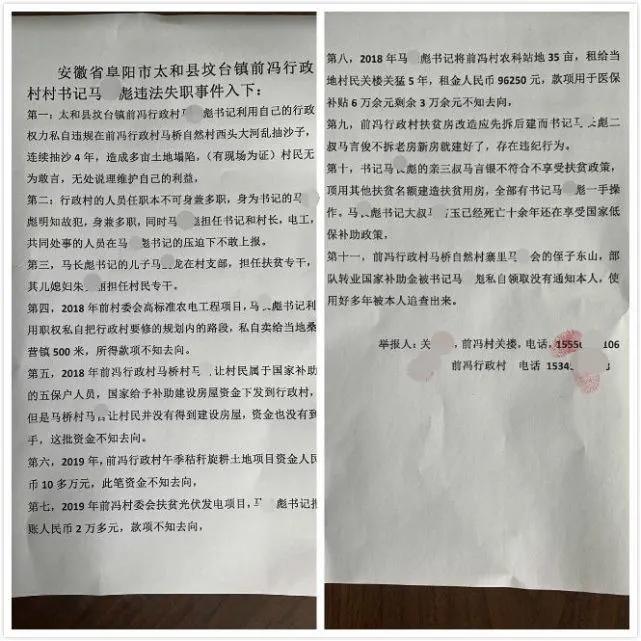 安徽省阜阳市太和县坟台镇前冯行政
村村书记马 彪违法失职事件入下：
第一：太和县坟台镇前冯行政村马 彪书记利用自己的行政
权力私自违规在前冯行政村马桥自然村西头大河乱抽沙子，
连续抽沙 4 年，造成多亩土地塌陷，（有现场为证）村民无
为敢言，无处说理维护自己的利益，
第二：行政村的人员任职本不可身兼多职，身为书记的马
彪明知故犯，身兼多职，同时马 担任书记和村长，电工，
共同处事的人员在马 彪书记的压迫下不敢上报。
第三，马长彪书记的儿子马 龙在村支部，担任扶贫专干，
其儿媳妇朱 丽担任村民专干。
第四，2018 年前村委会高标准农电工程项目，马 彪书记利
用职权私自把行政村要修的规划内的路段，私自卖给当地桑
营镇 500 米，所得款项不知去向。
第五，2018 年前冯行政村马桥村马 让村民属于国家补助
的五保户人员，国家给予补助建设房屋资金下发到行政村，
但是马桥村马 让村民并没有得到建设房屋，资金也没有到
手，这批资金不知去向。
第六，2019 年，前冯行政村午季秸秆旋耕土地项目资金人民
币 10 多万元，此笔资金不知去向。
第七，2019 年前冯村委会扶贫光伏发电项目，马 彪书记报
账人民币 2 万多元，款项不知去向，
第八，2018 年马 彪书记将前冯村农科站地 35 亩，租给当
地村民关楼关猛 5 年，租金人民币 96250 元，款项用于医保
补贴 6 万余元剩余 3 万余元不知去向，
第九，前冯行政村扶贫房改造应先拆后建而书记马 彪二
叔马言俊不拆老房新房就建好了，存在违纪行为。
第十，书记马 彪的亲三叔马言银不符合不享受扶贫政策，
项用其他扶贫名额建造扶贫用房，全部有书记马 彪一手操
作。马 彪书记大叔马 玉己经死亡十余年还在享受国家低
保补助政策，
第十一，前冯行政村马桥自然村寨里马 会的侄子东山，部
队转业国家补助金被书记马 彪私自领取没有通知本人，使
用好多年被本人追查出来。
举报人：关 ，前冯村关楼，电话，1555 106
前冯行政村 电话 1534 3